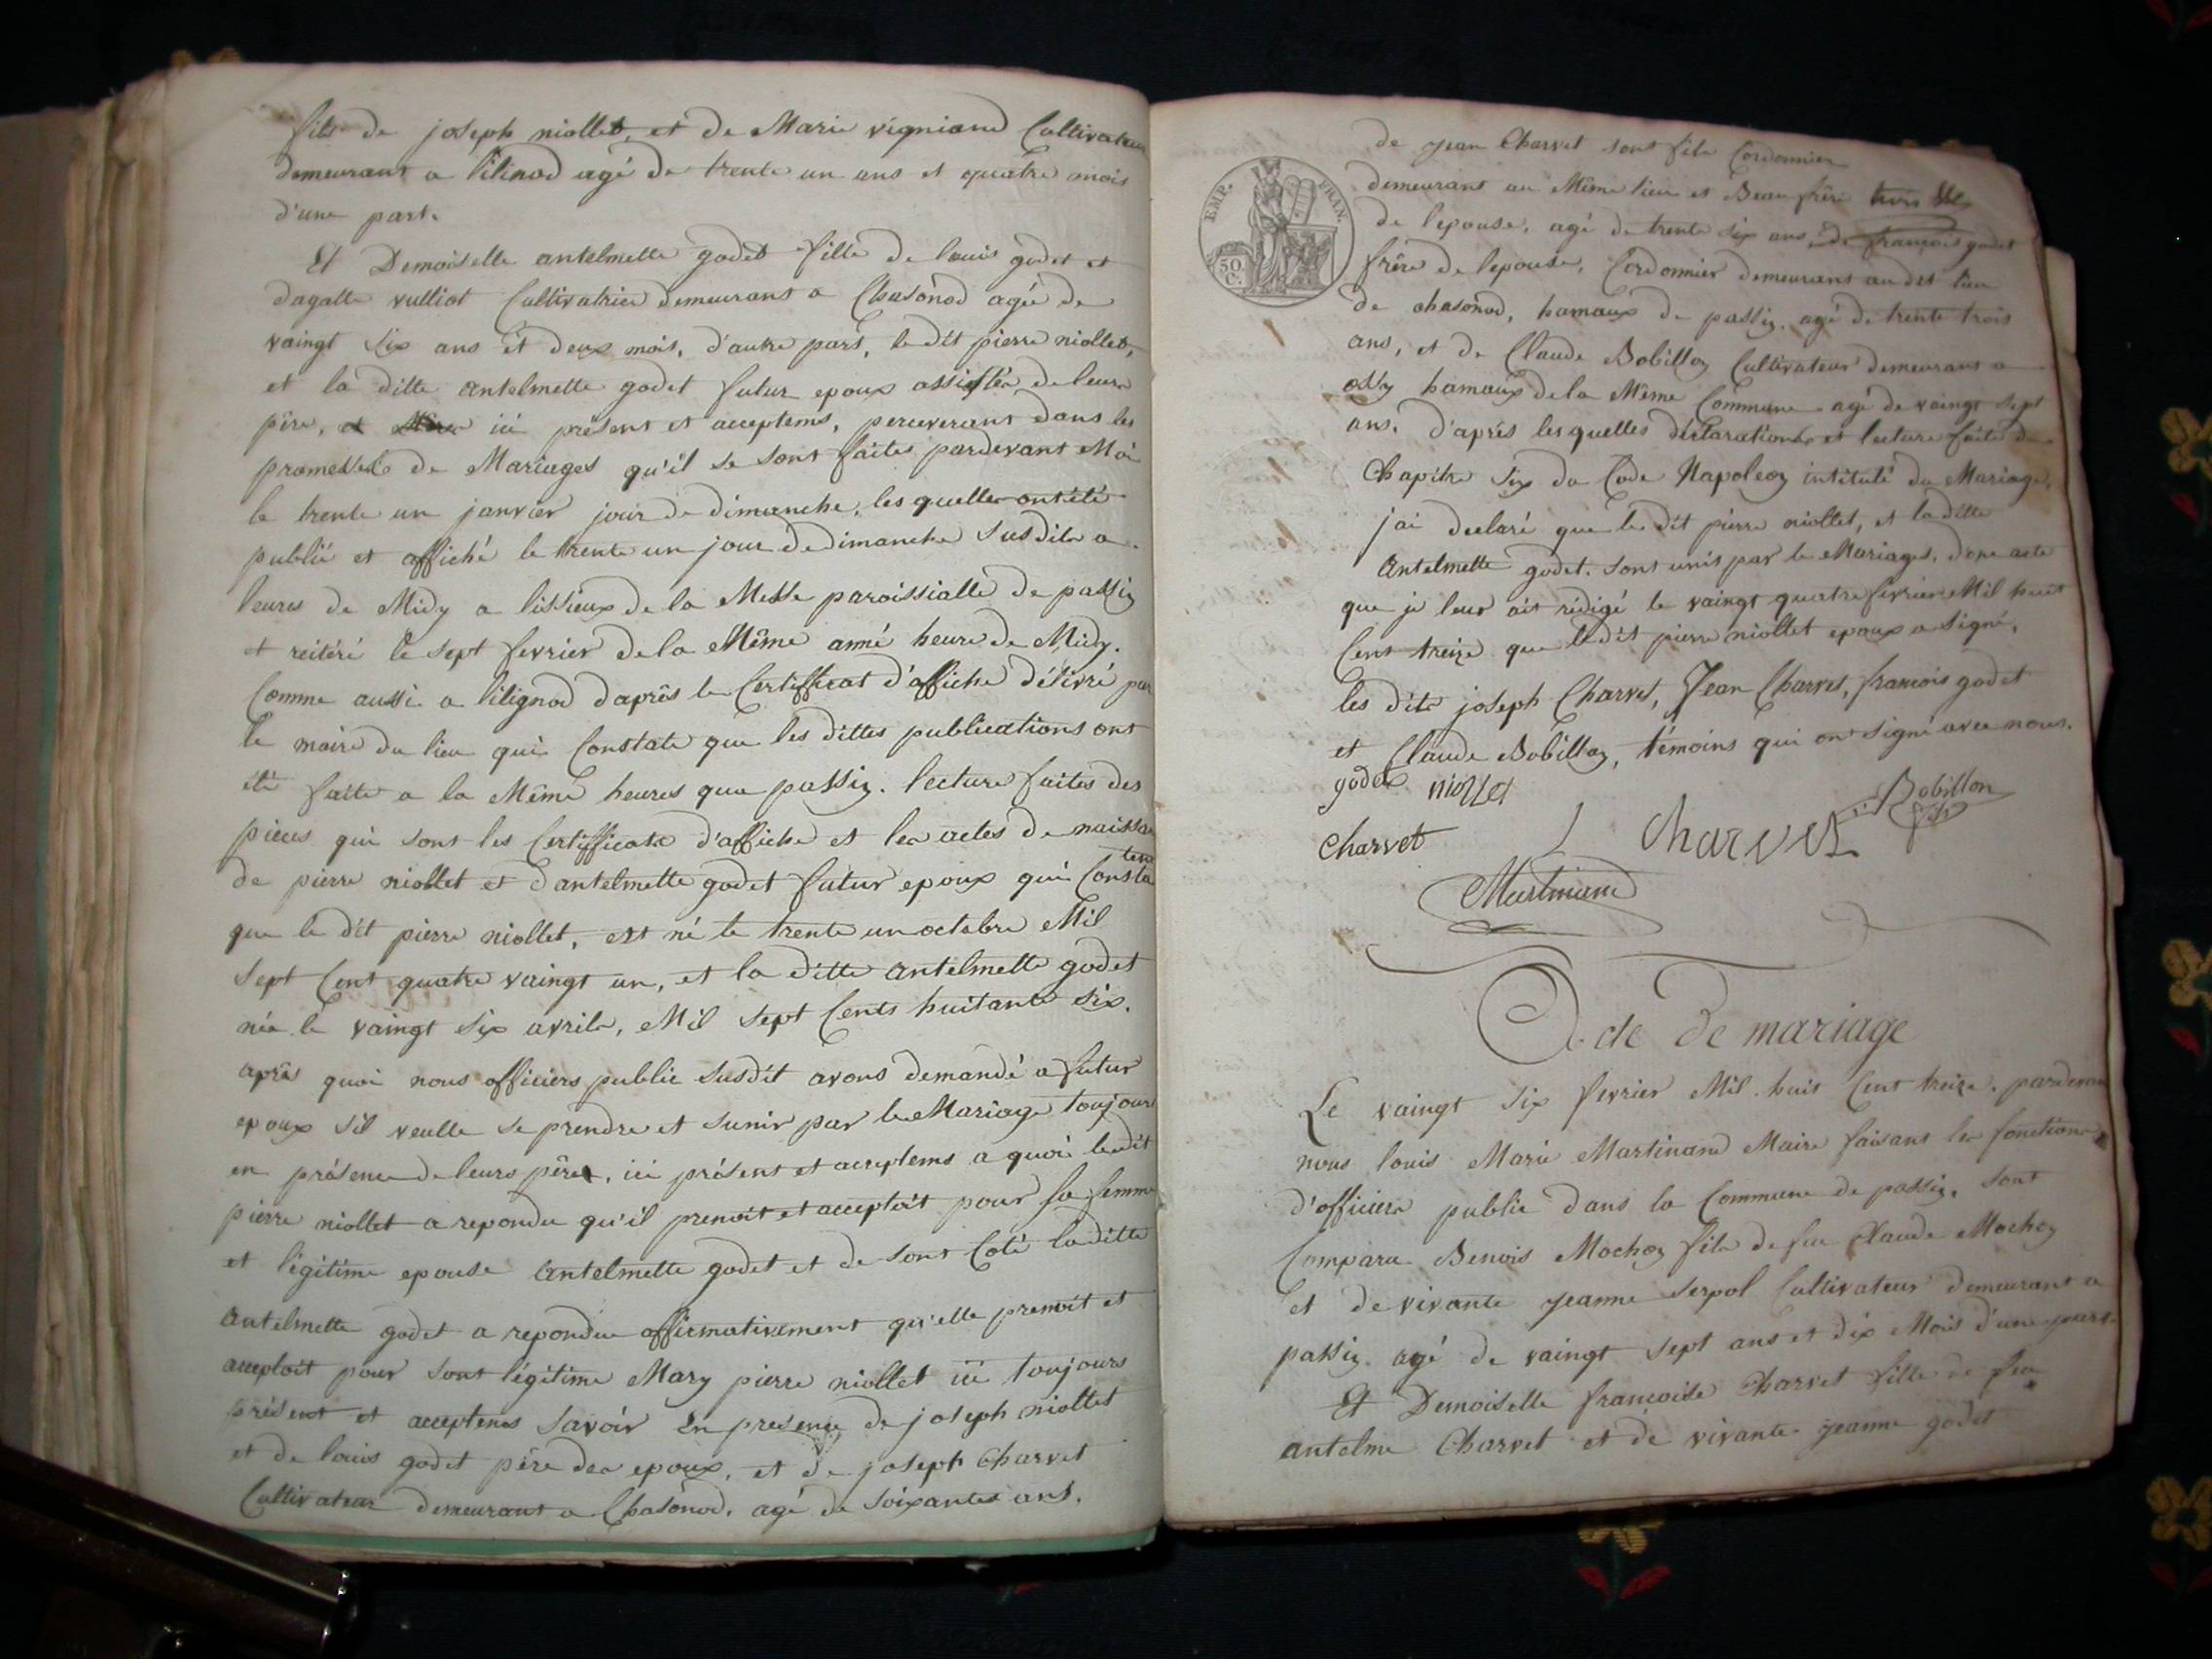 fils de joseph niollet, et de Marie vigniand Cultivateur
demeurant a lilinod agé de trente un ans et quatre mois
d'une part.
Et Demoiselle antelmette godet fille de louis godet et
dagatte vulliot Cultivatrice demeurant a Chasonod agée de
vaingt six ans et deux mois, d'autre part, le dit pierre niollet,
et la ditte antelmette godet futur epoux assistés de leurs
père, ici présent et acceptems, perceverant dans les
promesses de Mariages qu'il se sont faites pardevant Moi
le trente un janvier jour de dimanche, les quelles ont été
publié et affiché le trente un jour de dimanche susdits a
heures de Midy a lissieux de la Messe paroissialle de passin
et reitéré le sept fevrier de la Même anné heure de Midy.
Comme aussi a lilignod d'après le Certifficat d'affiche délivré par
le maire du lieu qui Constate que les dittes publications ont
été faite a la Même heures qua passin. lecture faites des
pieces qui sont les Certifficats d'affiche et les actes de naissa
de pierre niollet et d'antelmette godet futur epoux qui Consta
tent
que le dit pierre niollet, est né le trente un octobre Mil
sept Cent quatre vaingt un, et la ditte antelmette godet
née le vaingt six avrils, Mil sept Cents huitante six.
après quoi nous officiers public susdit avons demandé a futur
epoux s'il veulle se prendre et sunir par le Mariage toujours
en présence de leurs père, ici présent et acceptems a quoi ledit
pierre niollet a repondu qu'il prenoit et acceptoit pour sa femme
et légitime epouse antelmette godet et de sont Coté laditte
antelmette godet a repondue affirmativement qu'elle prenoit et
acceptoit pour sont légitime Mary pierre niollet ici toujours
présent et acceptens savoir En presence de joseph niollet
et de louis godet père des epoux, et de joseph Charvet
Cultivateur demeurant a Chasonod, agé de soixantes ans.
de jean Charvet sont fils Cordonnier
demeurant au Même lieu et Beau frère
de lepouse, agé de trente six ans, de françois godet
frère de lepouse, Cordonnier demeurant au dit lieu
de chasonod, hamaux de passin, agé de trente trois
ans, et de Claude Bobillon Cultivateur demeurant a
ossy hamaux de la Même Commune agé de vaingt sept
ans. d'après les quelles déclarations et lecture faite du
Chapitre six du Code Napoleon intitulé du Mariage,
j'ai declaré que le dit pierre niollet, et la ditte
Antelmette godet. sont unis par le Mariages. done acte
que je leur ait rédigé le vaingt quatre fevrier Mil huit
Cent treize que ledit pierre niollet epoux a signé,
les dits joseph Charvet, Jean Charvet, francois godet
et Claude Bobillon, témoins qui ont signé avec nous.
godet niollet
Bobillon
Charvet Charvet
Martinand
EMP. FRAN.
50 C.
Acte de mariage
Le vaingt six fevrier Mil huit Cent treize. pardevant
nous louis Marie Martinand Maire faisant les fonctions
d'officiers public dans la Commune de passin, sont
Comparu Benois Mochon fils de feu Claude Mochon
et de vivante jeanne serpol Cultivateur demeurant a
passin. agé de vaingt sept ans et dix Mois d'une part.
Et Demoiselle françoise Charvet fille de feu
antelme Charvet et de vivante jeanne godet